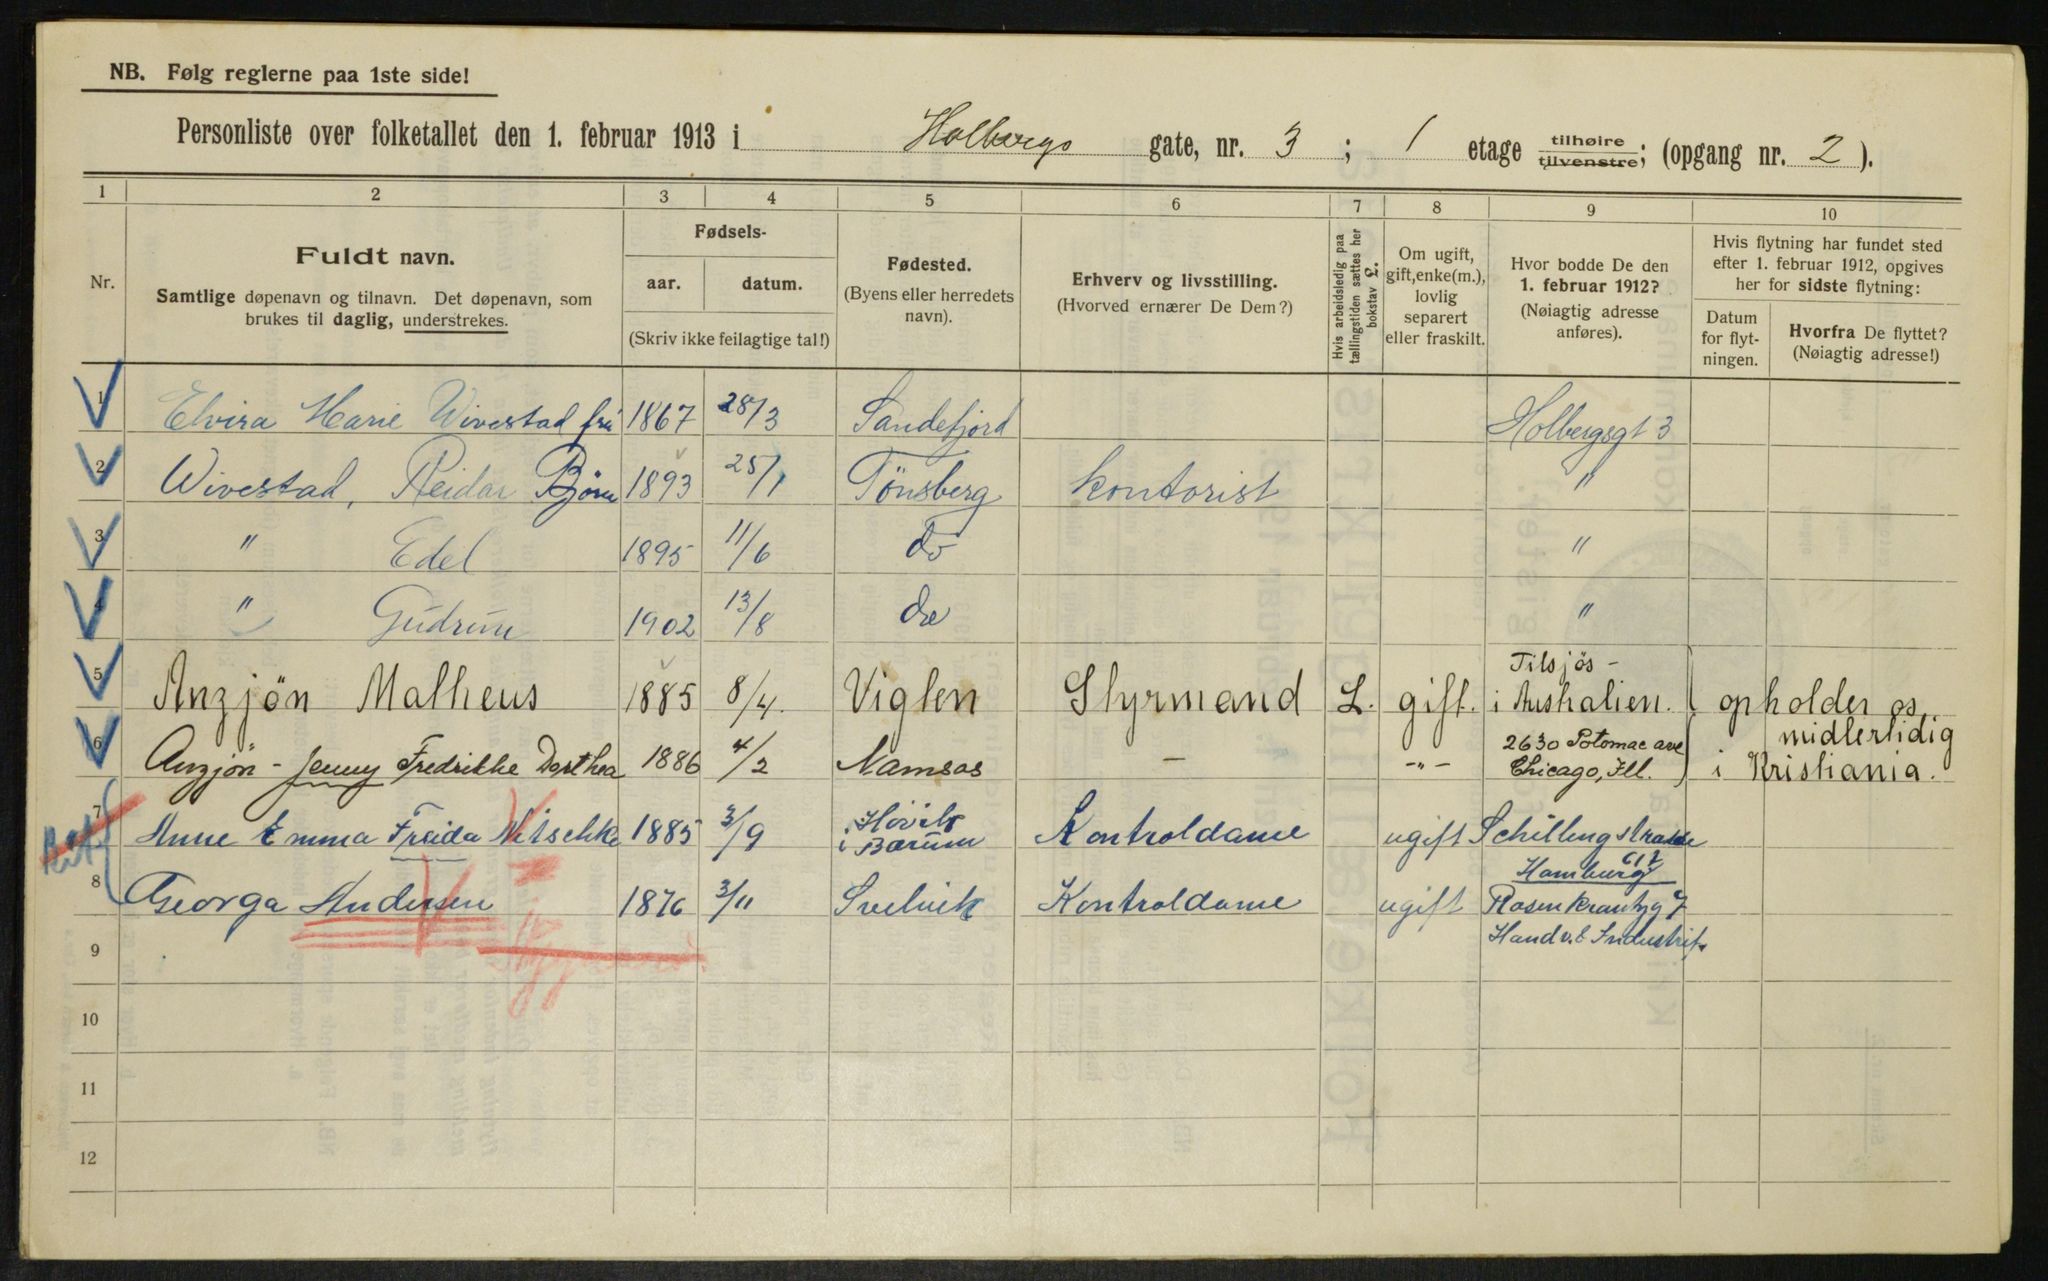 NB. Følg reglerne paa 1ste side!
Personliste over folketallet den 1. februar 1913 i Holbergs gate, nr. 3 ; 1 etage tilhøire tilvenstre; (opgang nr. 2 ).
1 2 3 4 5 6 7 8 9 10
Nr.
Fuldt navn.
Samtlige døpenavn og tilnavn. Det døpenavn, som
brukes til daglig, understrekes.
Fødsels-
aar. datum.
(Skriv ikke feilagtige tal!)
Fødested.
(Byens eller herredets
navn).
Erhverv og livsstilling.
(Hvorved ernærer De Dem?)
Hvis arbeidsledig paa
tællingstiden sættes her
bokstav L.
Om ugift,
gift, enke(m.),
lovlig
separert
eller fraskilt.
Hvor bodde De den
1. februar 1912?
(Nøiagtig adresse
anføres).
Hvis flytning har fundet sted
efter 1. februar 1912, opgives
her for sidste flytning:
Datum
for flyt-
ningen.
Hvorfra De flyttet?
(Nøiagtig adresse!)
1 Elvira Marie Wivestad frú 1867 28/3 Sandefjord Holbergsgt 3
2 Wivestad, Reidar Bjørn 1893 25/1 Tønsberg kontorist "
3 " Edel 1895 11/6 do "
4 " Gudrun 1902 13/8 do "
5 Anzjön Matheus 1885 8/4. Viglen Styrmand L. gift. Tilsjös -
i Australien. opholder os
midlertidig
6 Anzjön - Jenny Fredrikke Dorthea 1886 4/2 Namsos - -"- 2630 Potomac ave
Chicago, Ill. i Kristiania.
7 Anne Emma Freida Nitschke 1885 3/9 Høvik
i Bærum Kontroldame ugift Schillingstrasse
Hamburg
8 Georga Andersen 1876 3/11 Svelvik Kontroldame ugift Rosenkrantzg 7
Handv. & Industrif.
9
10
11
12